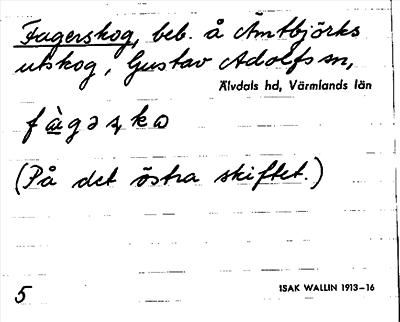 Fagerskog, beb. å Amtbjörks
utskog, Gustav Adolfs sn,
Älvdals hd, Värmlands län
(På det östra skiftet.)
5
ISAK WALLIN 1913–16